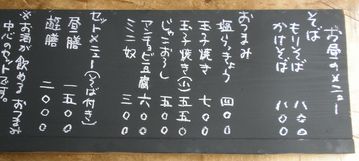 お昼のメニュー
そば
もりそば 八〇〇
かけそば 八〇〇
おつまみ
塩らっきょう 四〇〇
玉子焼き 七〇〇
玉子焼き(小) 五〇〇
じゃこおろし 五〇〇
アンチョビ豆腐 六〇〇
ミニ奴 三〇〇
セットメニュー(そば付き)
昼膳 一五〇〇
遊膳 二〇〇〇
※お酒が飲めるおつまみ
中心のセットです。